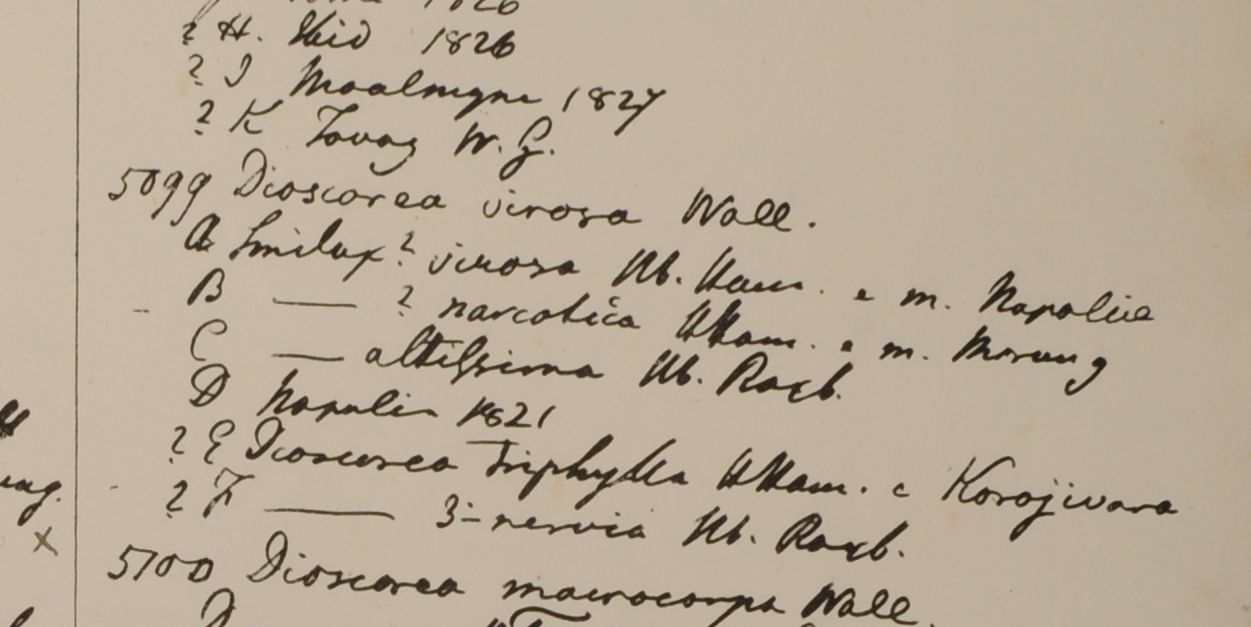 1826
? H. Ibid 1826
? I Moalmyne 1827
? K Tavoy W. G.
5099 Dioscorea virosa Wall.
A Smilax? virosa Hb. Ham. e m. Napaliae
B —— ? narcotica HHam. e m. Morung
C —— altissima Hb. Roxb.
D Napalia 1821
? E Dioscorea triphylla HHam. e Korojivara
? F —— 3-nervia Hb. Roxb.
5100 Dioscorea macrocarpa Wall.